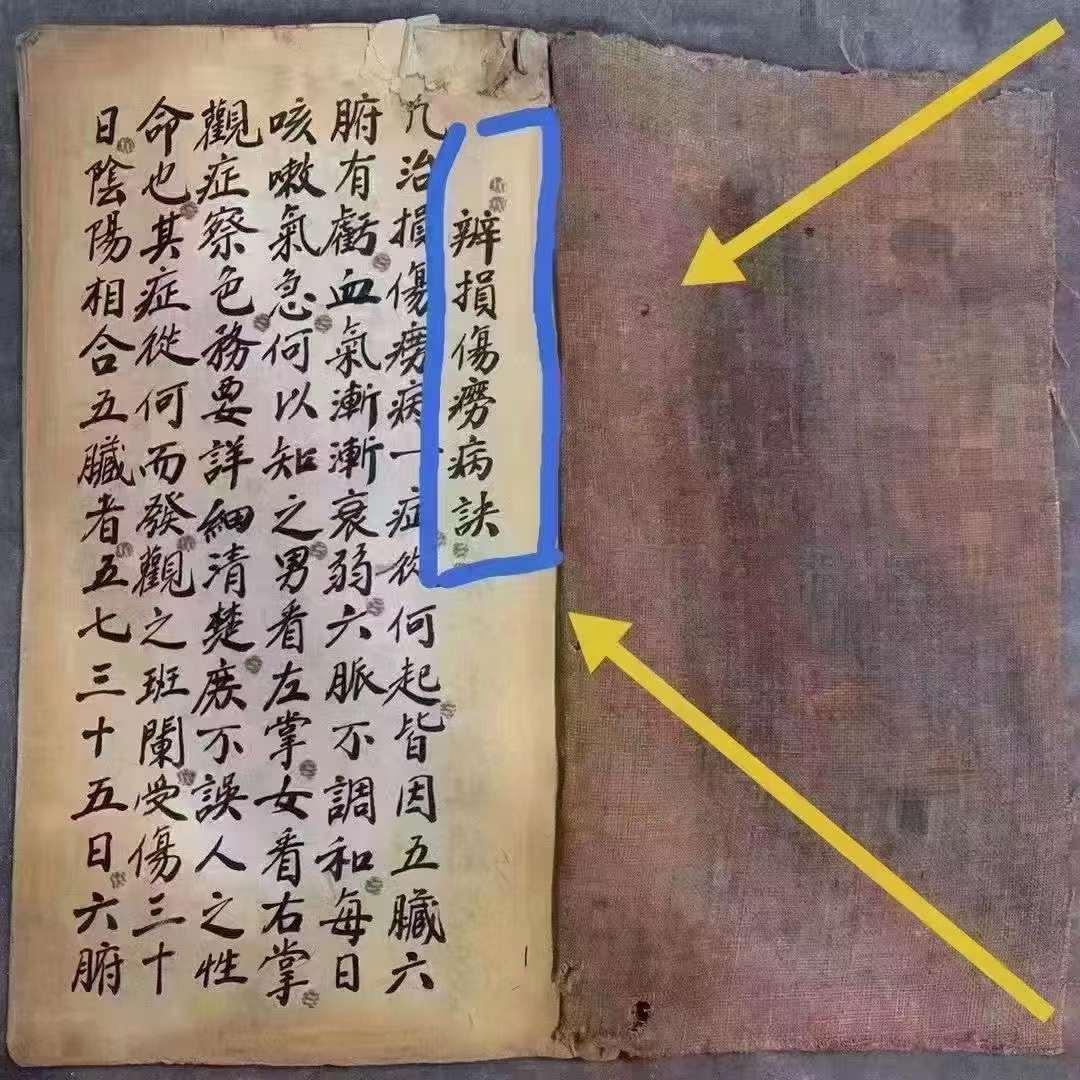 辨損傷癆病訣
凢治損傷癆病一症從何起皆因五臟六
腑有虧血氣漸漸衰弱六脈不調和每日
咳嗽氣急何以知之男看左掌女看右掌
觀症察色務要詳細清楚庶不誤人之性
命也其症從何而發觀之班闌受傷三十
日陰陽相合五臟者五七三十五日六腑